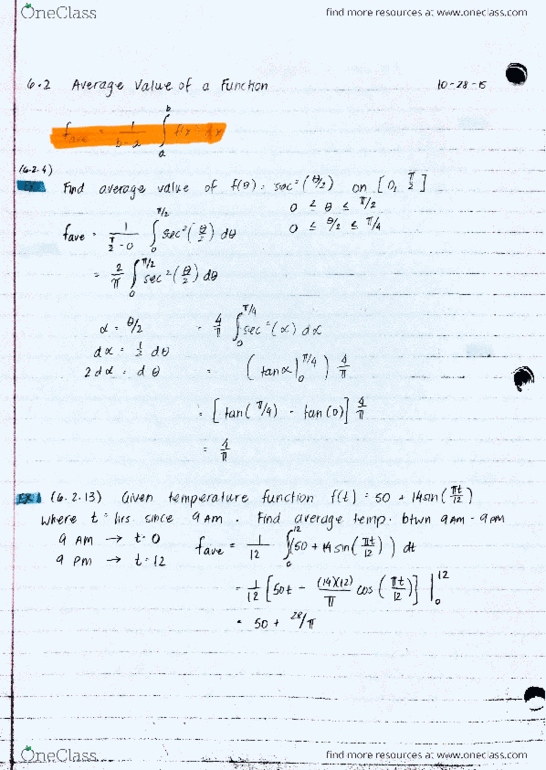 OneClass
find more resources at www.oneclass.com
6.2 Average Value of a Function 10-28-15
f_ave = 1/(b-a) ∫_a^b f(x) dx
(6.2.4)
Find average value of f(θ) = sec²(θ/2) on [0, π/2]
0 ≤ θ ≤ π/2
f_ave = 1/(π/2 - 0) ∫_0^{π/2} sec²(θ/2) dθ 0 ≤ θ/2 ≤ π/4
= 2/π ∫_0^{π/2} sec²(θ/2) dθ
α = θ/2 = 4/π ∫_0^{π/4} sec²(α) dα
dα = 1/2 dθ
2dα = dθ = (tanα|_0^{π/4}) 4/π
= [tan(π/4) - tan(0)] 4/π
= 4/π
EX (6.2.13) Given temperature function f(t) = 50 + 14sin(πt/12)
where t = hrs since 9AM. Find average temp. btwn 9AM - 9PM
9 AM → t=0 f_ave = 1/12 ∫_0^12 (50 + 14 sin(πt/12)) dt
9 PM → t=12
= 1/12 [50t - (14)(12)/π cos(πt/12)] |_0^12
= 50 + 28/π
OneClass
find more resources at www.oneclass.com